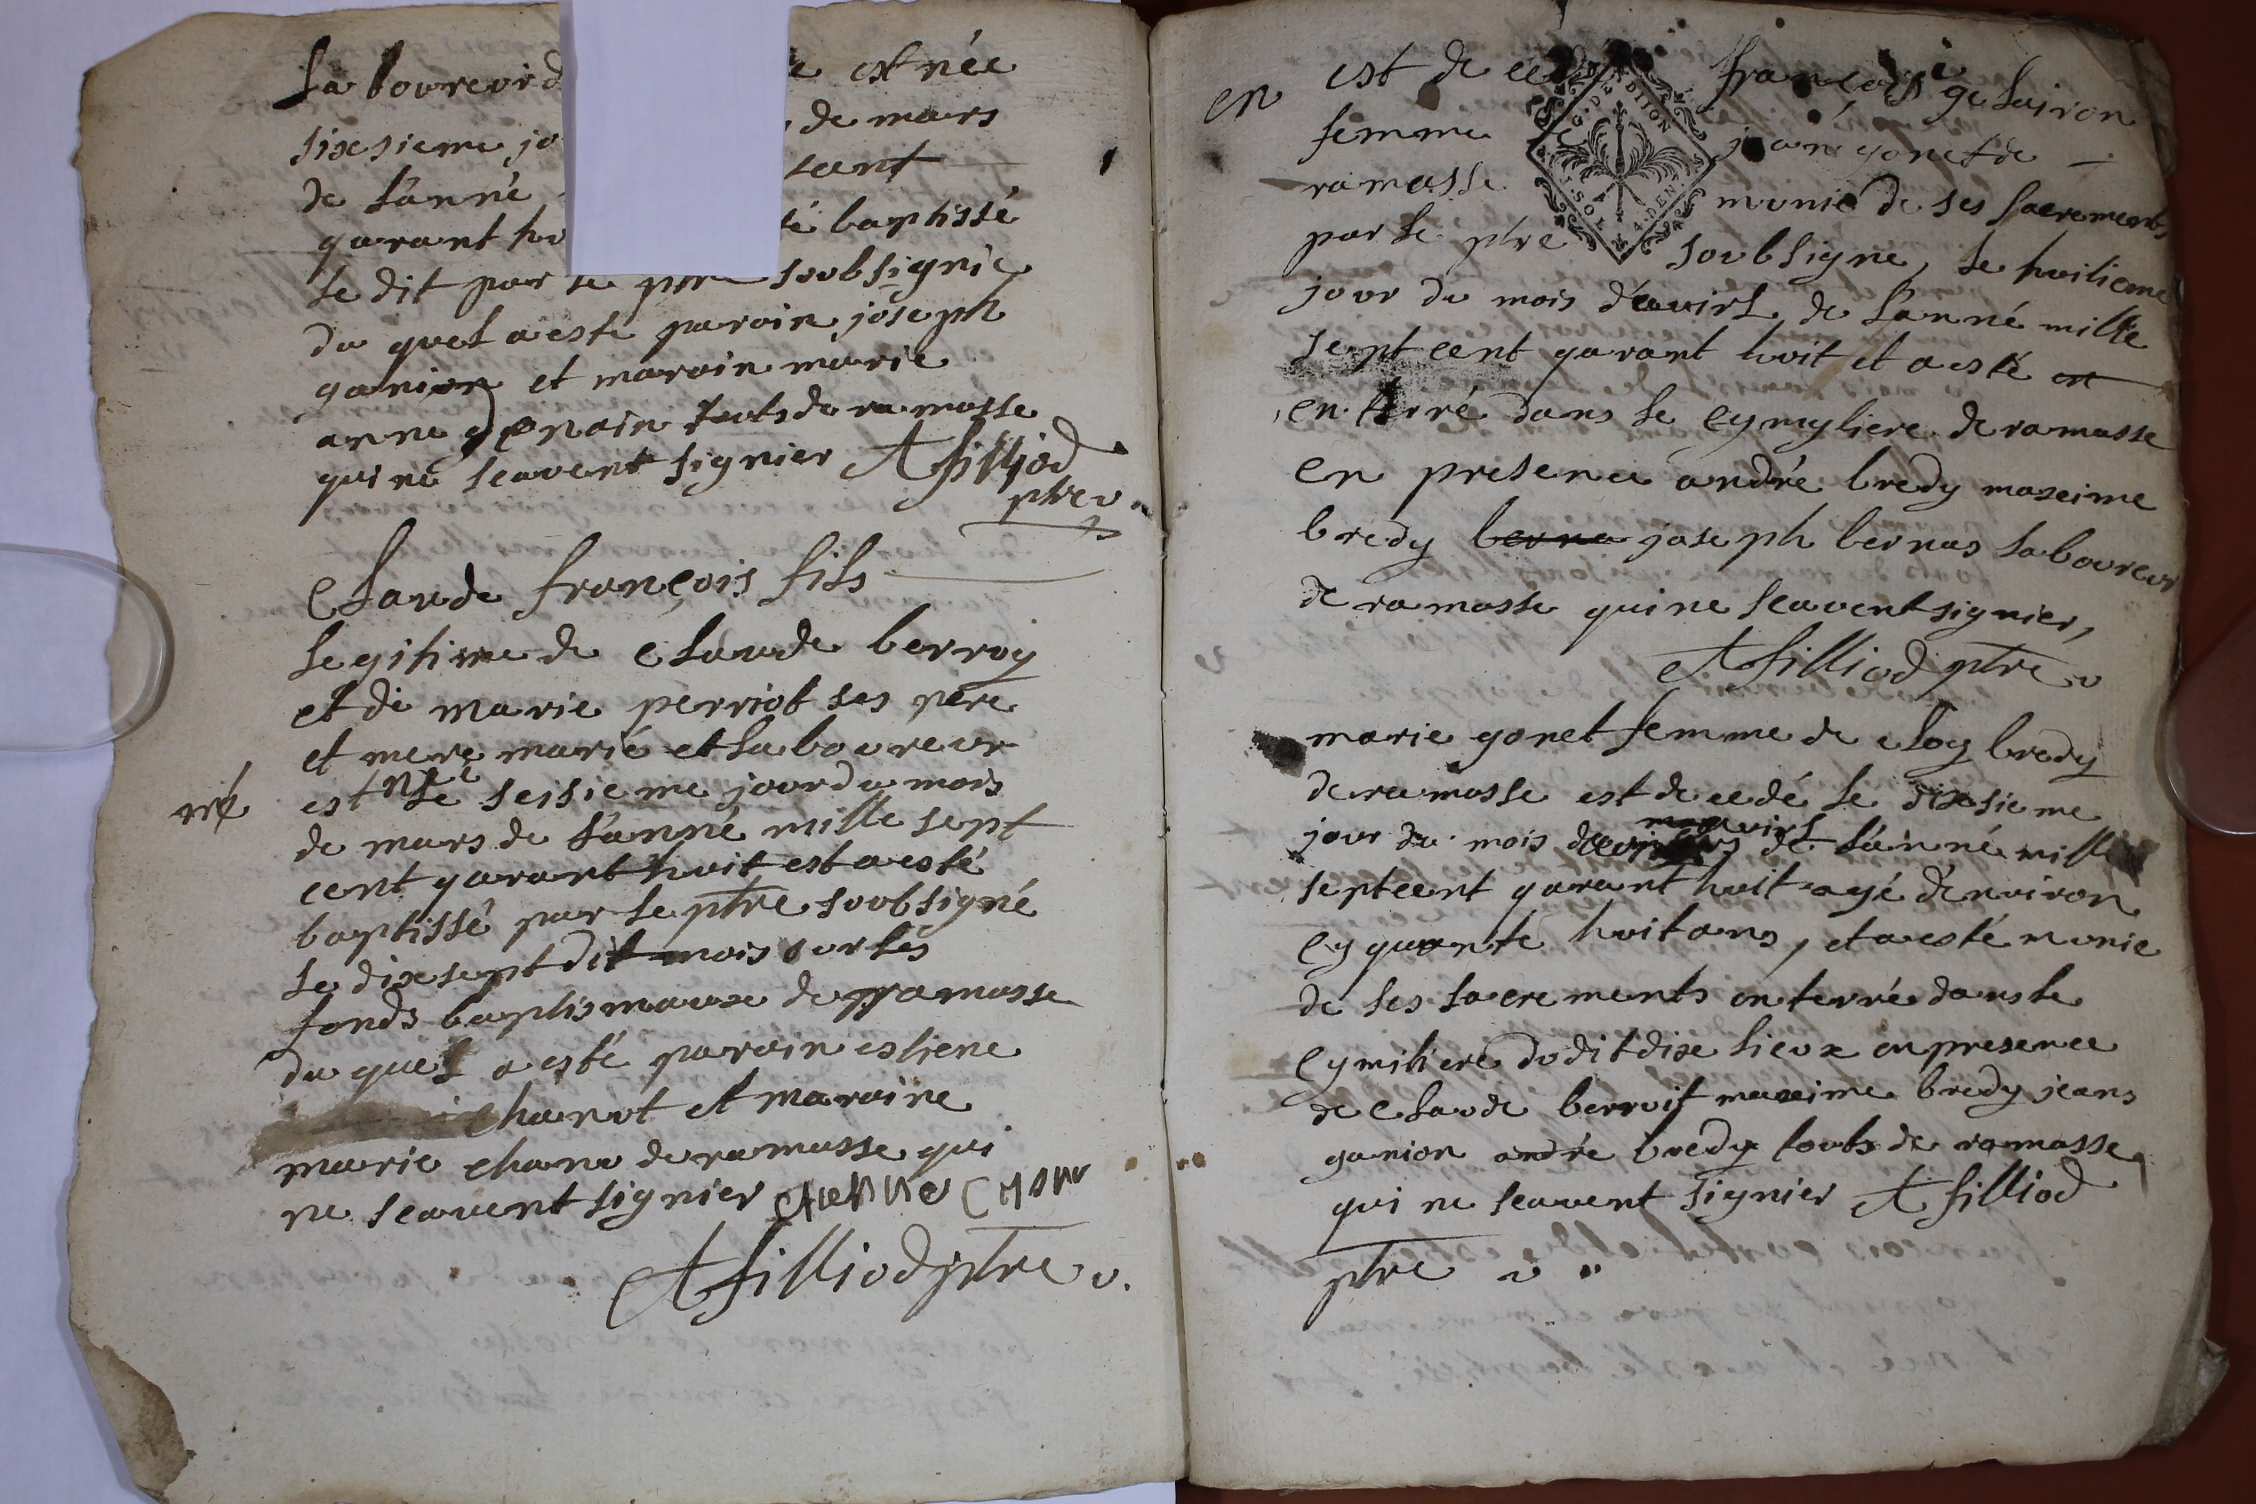 Laboureur d e est née
sixesieme jo de mars
de lánné tant
qarant hu té baptissé
le dit par le ptre soubsignié
du quel a esté paroin joseph
ganion et maroin marie
anne genoin touts de ramasse
qui ne scavent signier A filliod
ptre v.
Claude françois fils
legitime de claude berroy
et de marie perriot ses pere
et mere marié et laboureur
est née le seisieme jour du mois
né
de mars de lánné mille sept
cent qarant huit est a esté
baptissé par le ptre soubsigné
le dixsept dit mois sur les
fonds baptismaux de ramasse
du quel a esté paroin estiene
chanut et maroine
marie chanu de ramasse qui
ne scavent signier
A filliod ptre v.
est de cedé françoise gelairon
en
G. DE DIJON
SOL 4 DEN
femme de jean gonet de
ramasse munie de ses sacrements
par le ptre soubsigne, le huitieme
jour du mois d'avirl de lánné mille
sept cent qarant huit et a esté en
en terré dans le cymytiere de ramasse
en presence andré bredy maxime
bredy berna joseph bernas laboureur
de ramasse qui ne scavent signier,
A filliod ptre v
marie gonet femme de cloy bredy
de ramasse est de cedé le dixsieme
jour du mois avirl de lánné mille
septcent qarant huit agé dénviron
cyquante huit ans, et a esté munie
de ses sacrements enterré dans le
cymitiere dudit dix lieux en presence
de claude berroit maxime bredy jeans
ganion andré bredy touts de ramasse
qui ne scavent signier A filliod
ptre v